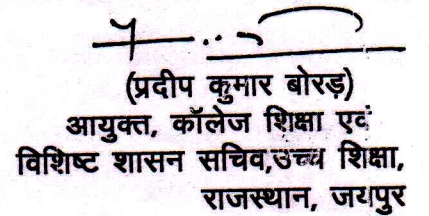 (प्रदीप कुमार बोरड़)
आयुक्त, कॉलेज शिक्षा एवं
विशिष्ट शासन सचिव,उच्च शिक्षा,
राजस्थान, जयपुर